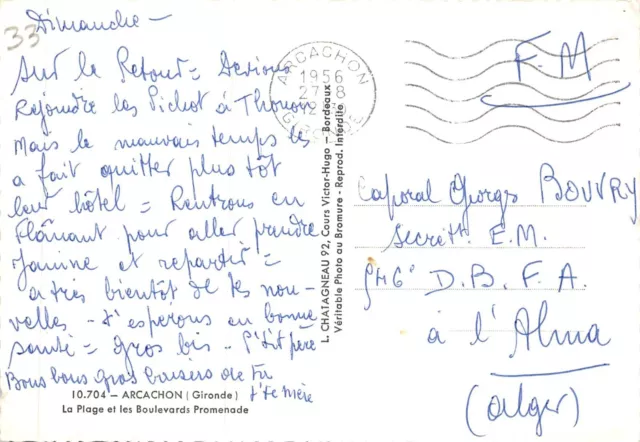 33
Dimanche –
Sur le Retour = Devions
Rejoindre les Pichot à Thouars
Mais le mauvais temps les
a fait quitter plus tôt
leur hôtel = Rentrons en
flânant pour aller prendre
Janine et repartir =
a très bientôt de tes nou-
velles – t'espérons en bonne
santé = gros bis – P'tit père
Bons bons gros baisers de ta
t'ite mère
10.704 – ARCACHON (Gironde)
La Plage et les Boulevards Promenade
L. CHATAGNEAU 92, Cours Victor-Hugo – Bordeaux
Véritable Photo au Bromure - Reprod. Interdite
ARCACHON
1956
27-8
GIRONDE
F.M
Caporal Georges BOUVRY
Secrét. E.M.
D.B.F.A.
à l'Alma
(Alger)